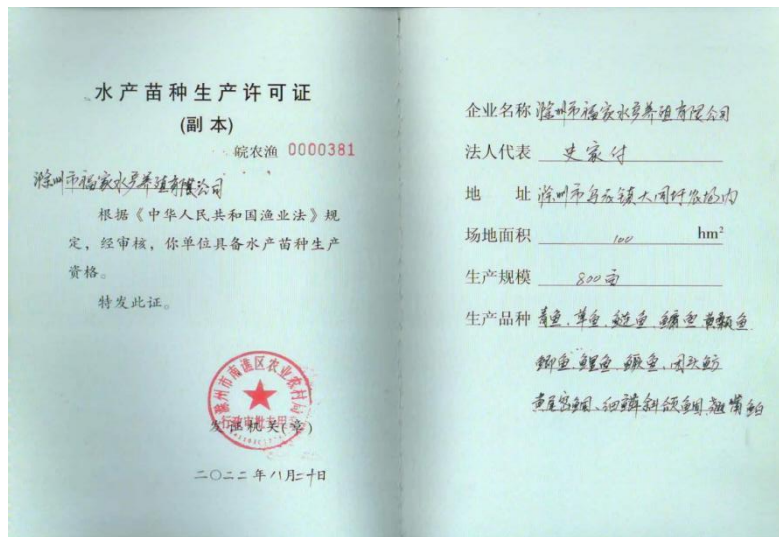 水产苗种生产许可证
(副本)
皖农渔 0000381
滁州市福家水产养殖有限公司
根据《中华人民共和国渔业法》规
定，经审核，你单位具备水产苗种生产
资格。
特发此证。
滁州市南谯区农业农村局
行政审批专用章
发证机关(章)
二〇二二年八月二十日
企业名称 滁州市福家水产养殖有限公司
法人代表 史家付
地 址 滁州市乌衣镇大同圩农场内
场地面积 100 hm²
生产规模 800亩
生产品种 青鱼、草鱼、鲢鱼、鳙鱼、黄颡鱼
鲫鱼、鲤鱼、鳜鱼、团头鲂
黄尾密鲴、细鳞斜颌鲴、翘嘴鲌